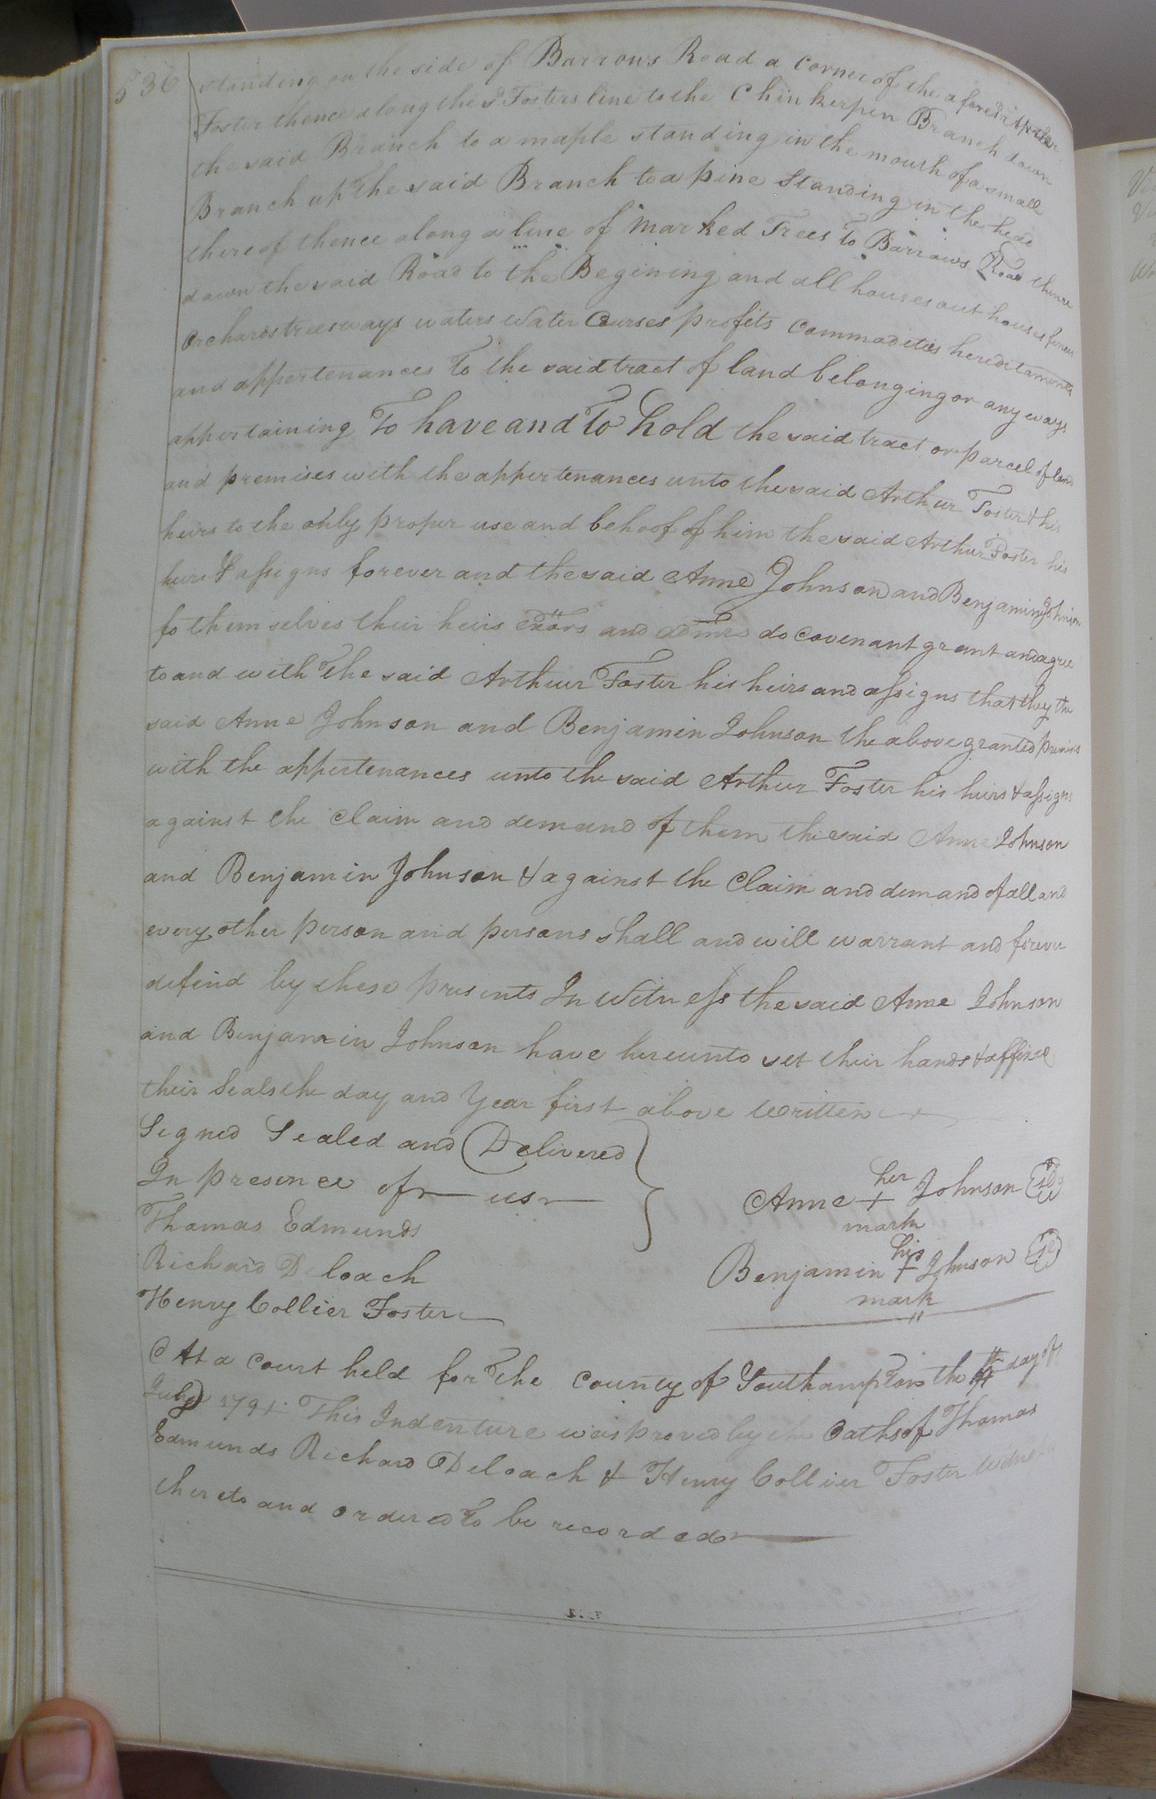 536
standing on the side of Barrows Road a corner of the aforesd Arthur
Foster thence along the sd Fosters line to the Chinkerpen Branch down
the said Branch to a maple standing in the mouth of a small
Branch up the said Branch to a pine standing in the head
thereof thence along a line of Marked Trees To Barrows Road thence
down the said Road to the Begining and all houses out houses fences
orchards trees ways waters Water Courses profits commodities hereditaments
and appertenances To the said tract of land belonging or any ways
appertaining To have and To hold the said tract or parcel of land
and premises with the appertenances unto the said Arthur Foster & his
heirs to the only proper use and behoof of him the said Arthur Foster his
heirs & assigns forever and the said Anne Johnson and Benjamin Johnson
fo themselves their heirs exors and admrs do covenant grant and agree
to and with The said Arthur Foster his heirs and assigns that they the
said Anne Johnson and Benjamin Johnson the above granted premises
with the appertenances unto the said Arthur Foster his heirs & assigns
against the Claim and demand of them the said Anne Johnson
and Benjamin Johnson & against the Claim and demand of all and
every other person and persons shall and will warrant and forever
defend by these presents In Witness the said Anne Johnson
and Benjamin Johnson have hereunto set their hands & affixed
their Seals the day and Year first above Written
Signed Sealed and Delivered
In presence of us
Thomas Edmunds
Richard Deloach
Henry Collier Foster
her
Anne + Johnson
mark
his
Benjamin + Johnson
mark
At a Court held for The County of Southampton the day of
July 179 This Indenture was proved by the Oaths of Thomas
Edmunds Richard Deloach & Henry Collier Foster witnesses
thereto and ordered To be recorded